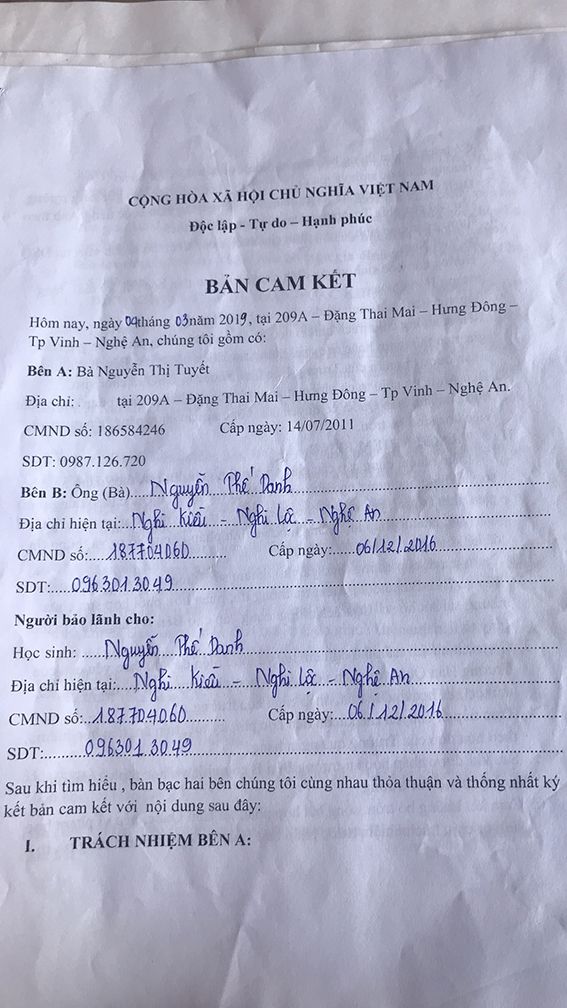 CỘNG HÒA XÃ HỘI CHỦ NGHĨA VIỆT NAM
Độc lập - Tự do – Hạnh phúc
BẢN CAM KẾT
Hôm nay, ngày 04tháng 03năm 2019, tại 209A – Đặng Thai Mai – Hưng Đông –
Tp Vinh – Nghệ An, chúng tôi gồm có:
Bên A: Bà Nguyễn Thị Tuyết
Địa chỉ: . tại 209A – Đặng Thai Mai – Hưng Đông – Tp Vinh – Nghệ An.
CMND số: 186584246 Cấp ngày: 14/07/2011
SDT: 0987.126.720
Bên B: Ông (Bà)....Nguyễn Phế Danh
Địa chỉ hiện tại:...Nghi Kiều - Nghi Lộc - Nghệ An
CMND số:....187704060.......... Cấp ngày:.....06/12/2016
SDT:.....0963013049
Người bảo lãnh cho:
Học sinh: .....Nguyễn Phế Danh
Địa chỉ hiện tại:....Nghi Kiều - Nghi Lộc - Nghệ An
CMND số:..187704060.......... Cấp ngày:...06/12/2016
SDT:..........0963013049
Sau khi tìm hiểu , bàn bạc hai bên chúng tôi cùng nhau thỏa thuận và thống nhất ký
kết bản cam kết với nội dung sau đây:
I. TRÁCH NHIỆM BÊN A: